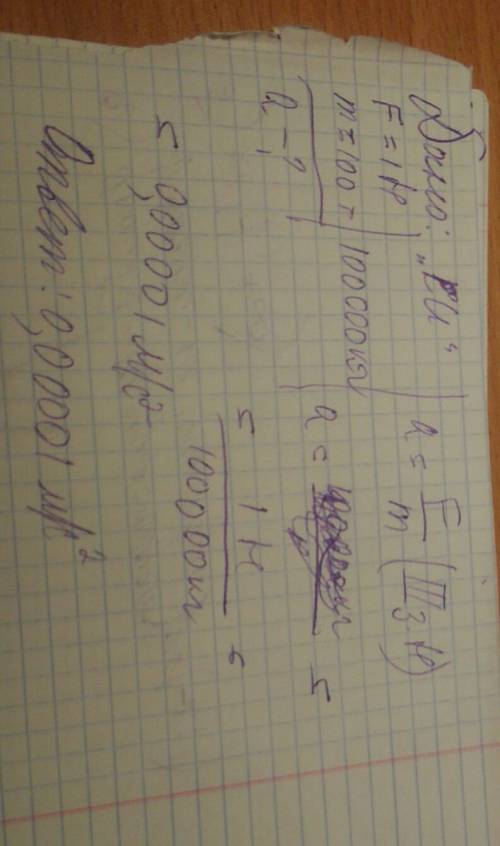 Дано: "СИ" a = F/m (III з. Н)
F = 1 Н
m = 100 т 100000 кг a = =
a - ?
= 1 Н / 100000 кг =
= 0,00001 м/с²
Ответ: 0,00001 м/с²